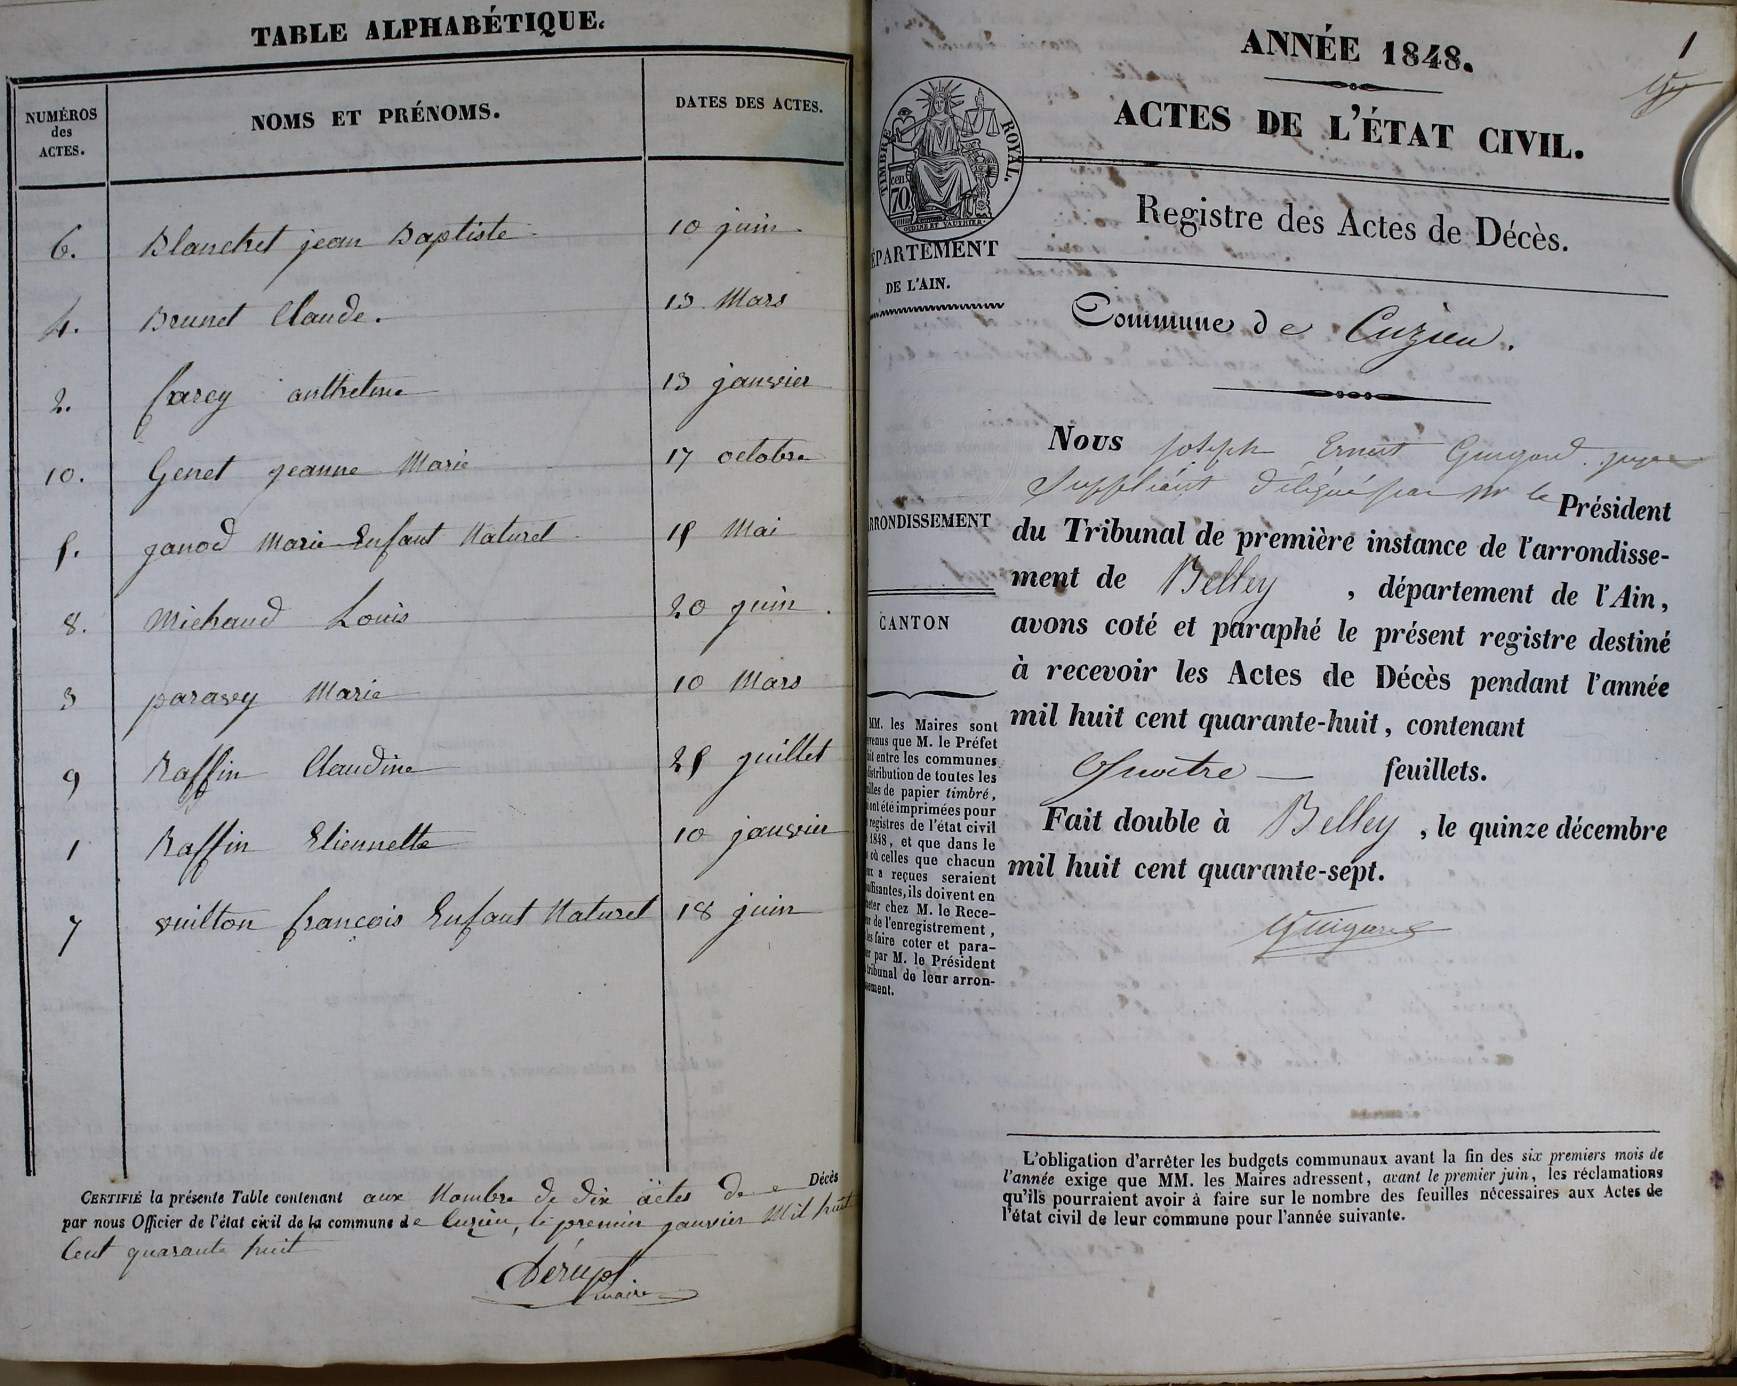 TABLE ALPHABÉTIQUE.
NUMÉROS
des
ACTES.
NOMS ET PRÉNOMS.
DATES DES ACTES.
6. Blanchet jean Baptiste 10 juin.
4. Brunet Claude. 13 Mars
2. farcy anthelme 13 janvier
10. Genet jeanne Marie 17 octobre
5. janod Marie Enfant Naturel 15 Mai
8. Michaud Louis 20 juin.
3 paravey Marie 10 Mars
9 Raffin Claudine 25 juillet
1 Raffin Etiennette 10 janvier
7 vuilton francois Enfant Naturel 18 juin
CERTIFIÉ la présente Table contenant aux Nombre de dix actes de Décès
par nous Officier de l'état civil de la commune de Cuzieu, le premier janvier Mil huit
Cent quarante huit
maire
1
ANNÉE 1848.
ACTES DE L'ÉTAT CIVIL.
TIMBRE ROYAL.
cen. 70
Registre des Actes de Décès.
ÉPARTEMENT
DE L'AIN.
Commune de Cuzieu.
Nous joseph Ernest Guigard juge
Suppléant délégué par Mr le Président
du Tribunal de première instance de l'arrondisse-
ment de Belley, département de l'Ain,
avons coté et paraphé le présent registre destiné
à recevoir les Actes de Décès pendant l'année
mil huit cent quarante-huit, contenant
Quatre feuillets.
Fait double à Belley, le quinze décembre
mil huit cent quarante-sept.
Guigard
RRONDISSEMENT
CANTON
MM. les Maires sont
venus que M. le Préfet
ait entre les communes
istribution de toutes les
illes de papier timbré,
ont été imprimées pour
registres de l'état civil
1848, et que dans le
où celles que chacun
ux a reçues seraient
uffisantes, ils doivent en
eter chez M. le Rece-
ur de l'enregistrement,
les faire coter et para-
er par M. le Président
tribunal de leur arron-
sement.
L'obligation d'arrêter les budgets communaux avant la fin des six premiers mois de
l'année exige que MM. les Maires adressent, avant le premier juin, les réclamations
qu'ils pourraient avoir à faire sur le nombre des feuilles nécessaires aux Actes de
l'état civil de leur commune pour l'année suivante.